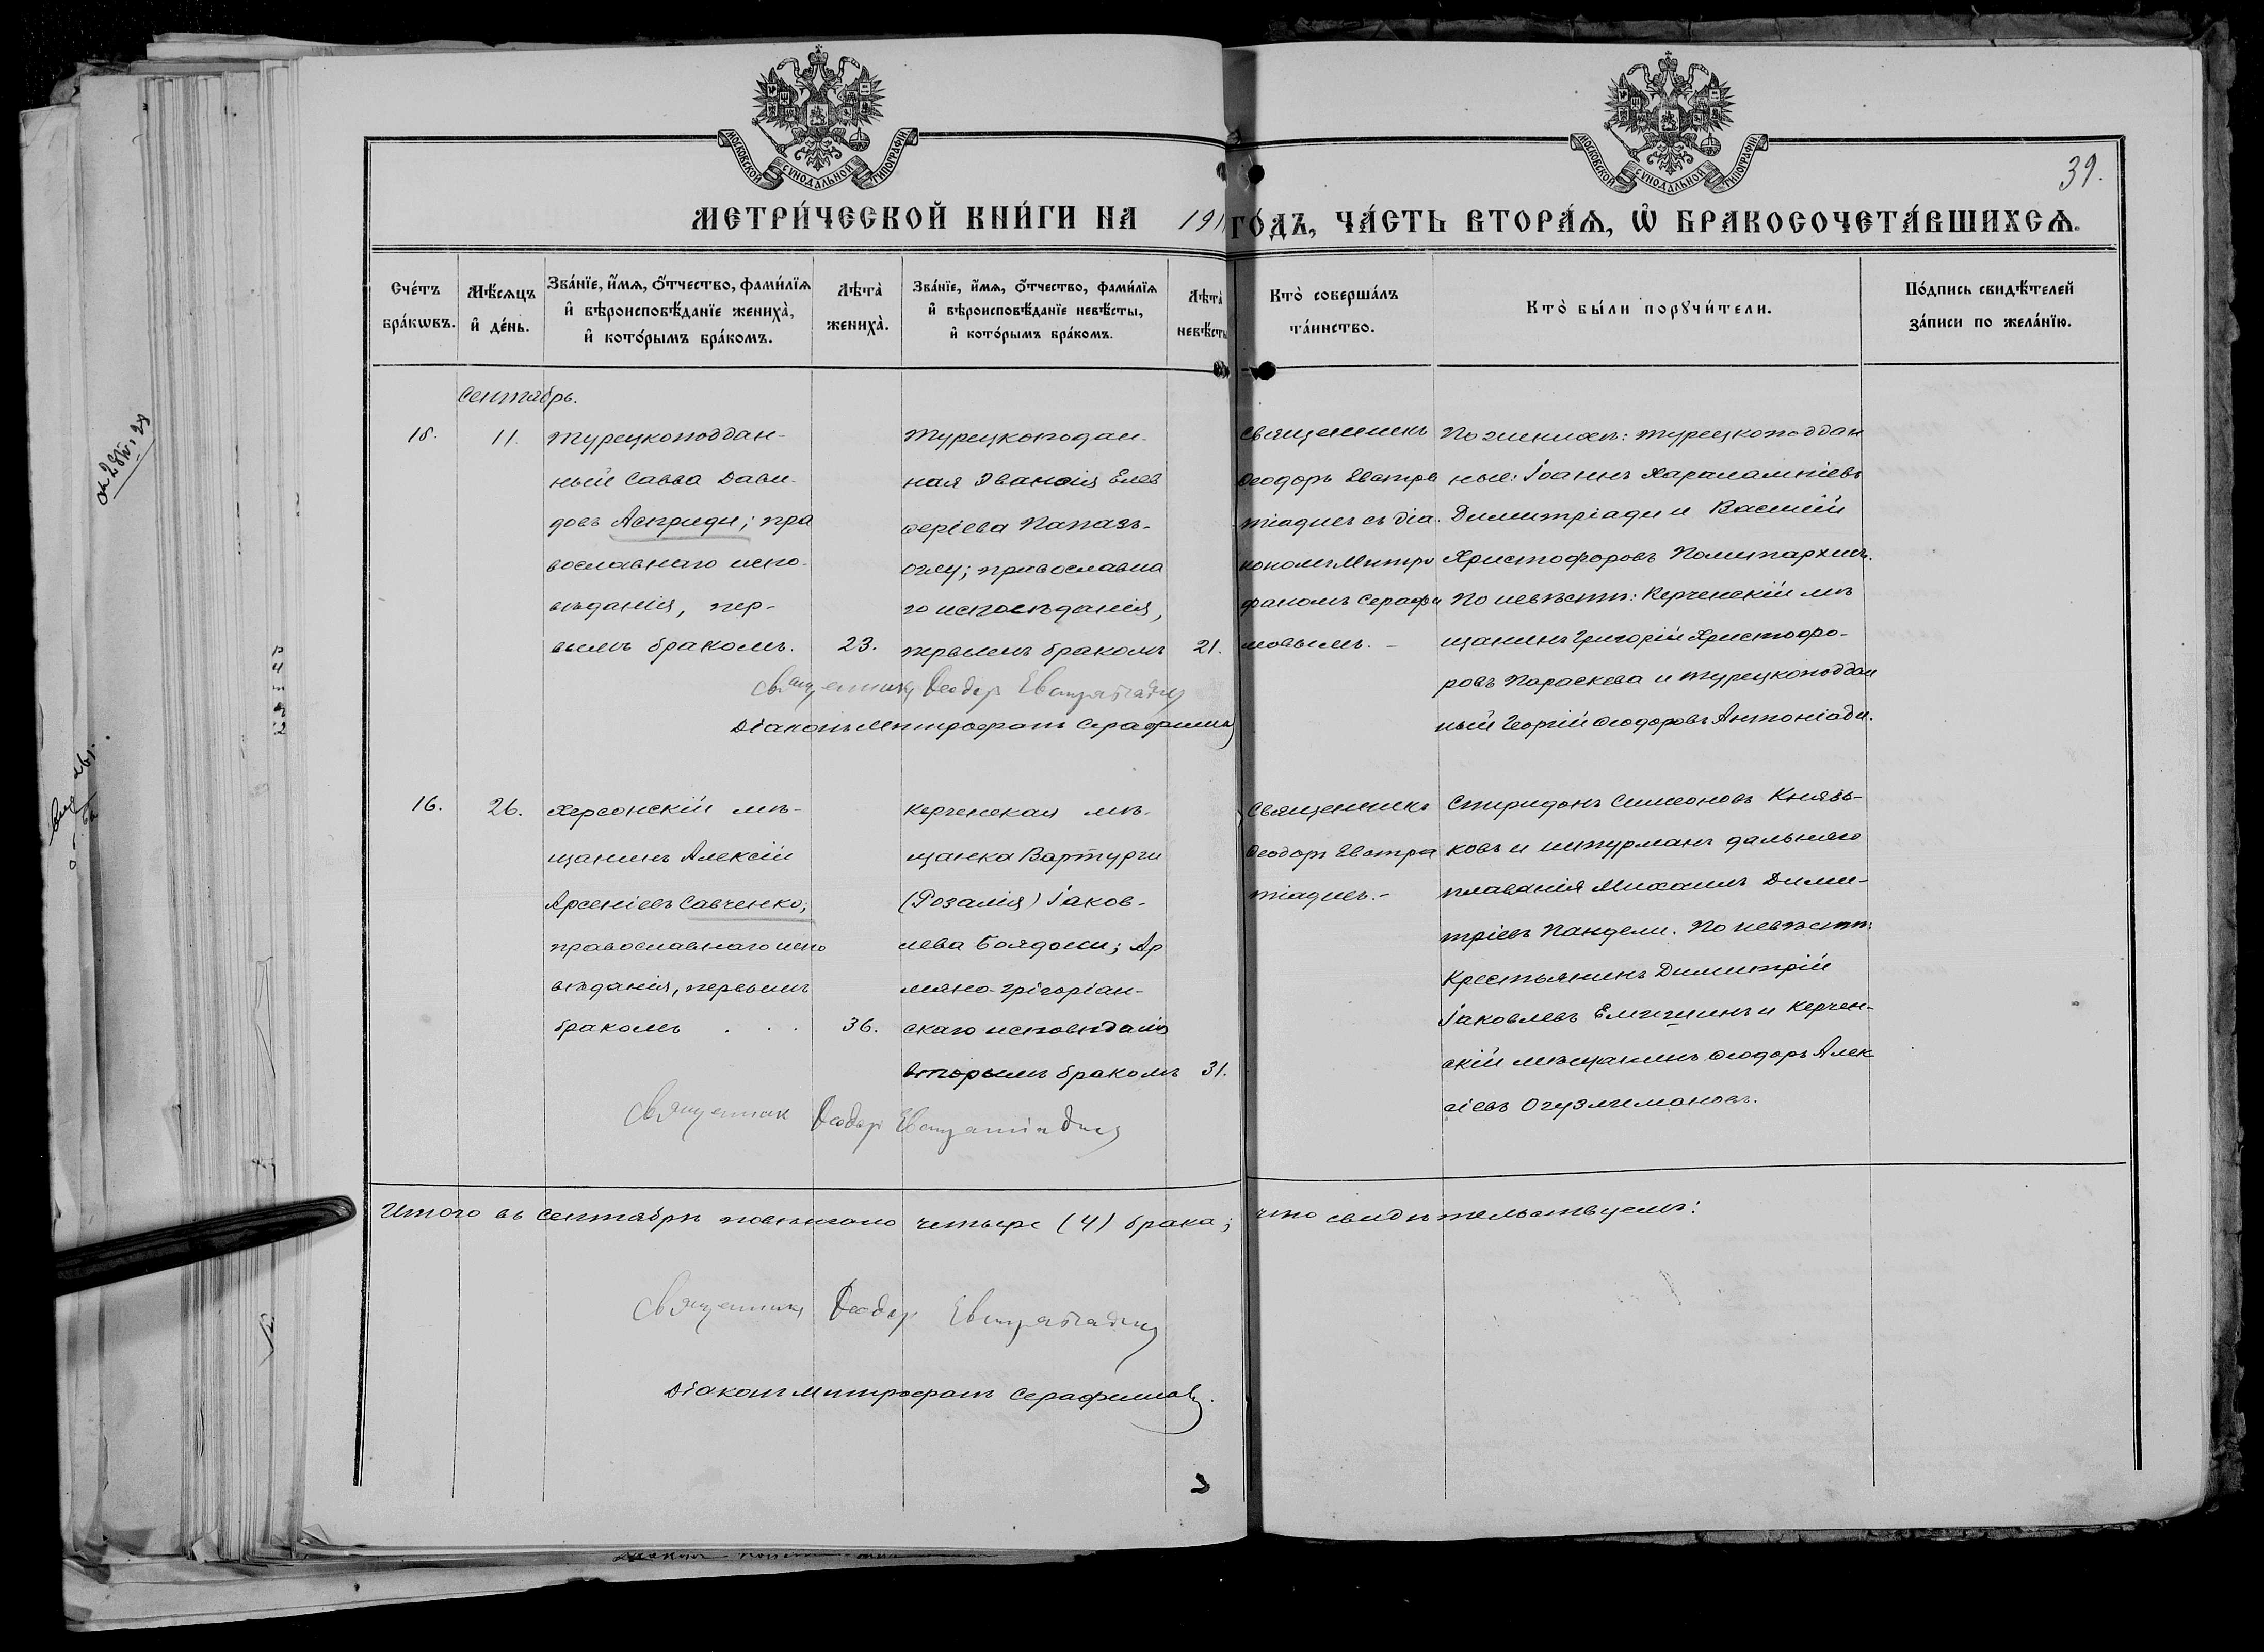 МОСКОВСКОЙ СѴНОДАЛЬНОЙ ТИПОГРАФІИ
МОСКОВСКОЙ СѴНОДАЛЬНОЙ ТИПОГРАФІИ
39.
МЕТРИ́ЧЕСКОЙ КНИ́ГИ НА 1911 ГО́ДЪ, ЧА́СТЬ ВТОРА́Ѧ, Ѽ БРАКОСОЧЕТА́ВШИХСѦ.
Сче́тъ
бра́кѡвъ.
Мѣ́сяцъ
и҆ де́нь.
Зва́нїе, и҆́мѧ, ѻ҆́тчество, фами́лїѧ
и҆ вѣроисповѣ́данїе жениха̀,
и҆ кото́рымъ бра́комъ.
Лѣта̀
жениха̀.
Зва́нїе, и҆́мѧ, ѻ҆́тчество, фами́лїѧ
и҆ вѣроисповѣ́данїе невѣ́сты,
и҆ кото́рымъ бра́комъ.
Лѣта̀
невѣ́сты
Кто̀ соверша́лъ
та́инство.
Кто̀ бы́ли порꙋчи́тели.
По́дпись свидѣ́телей
за́писи по жела́нїю.
Сентябрь.
15.
11.
Турецкоподдан-
ный Савва Дави-
довъ Асприди; пра
вославнаго испо-
вѣданія, пер-
вымъ бракомъ.
23.
Турецкоподан-
ная Эванѳія Елев
ѳеріева Папаз-
оглу; православна
го исповѣданія,
первымъ бракомъ
21.
Священникъ
Ѳеодоръ Евстра
тіадисъ съ діа-
кономъ Митро
фаномъ Серафи
мовымъ. -
По женихѣ: турецкоподдан
ные: Іоаннъ Харалампіевъ
Димитріади и Василій
Христофоровъ Полипархиъ.
По невѣстѣ: Керченскій мѣ
щанинъ Григорій Христофо-
ровъ Параскева и турецкоподдан
ный Георгій Ѳеодоровъ Антоніади.
Священникъ Ѳеодоръ Евстратіадисъ
Діаконъ Митрофанъ Серафимовъ
16.
26.
Херсонскій мѣ-
щанинъ Алексій
Арсеніевъ Савченко;
православнаго испо
вѣданія, первымъ
бракомъ . . .
36.
Керченская мѣ-
щанка Вартурги
(Розалія) Іаков-
лева Боядоги; Ар
мяно-григоріан-
скаго исповѣданія
вторымъ бракомъ
31.
Священникъ
Ѳеодоръ Евстра
тіадисъ.-
Спиридонъ Симеоновъ Князь-
ковъ и штурманъ дальняго
плаванія Михаилъ Дими-
тріевъ Пандели. По невѣстѣ:
Крестьянинъ Димитрій
Іаковлевъ Еличинъ и Керчен-
скій мѣщанинъ Ѳеодоръ Алек
сіевъ Огузлимановъ.
Священник Ѳеодоръ Евстратіадисъ
Итого въ Сентябрѣ повѣнчано четыре (4) брака; что свидѣтельствуемъ:
Священникъ Ѳеодоръ Евстратіадисъ
Діаконъ Митрофанъ Серафимовъ.